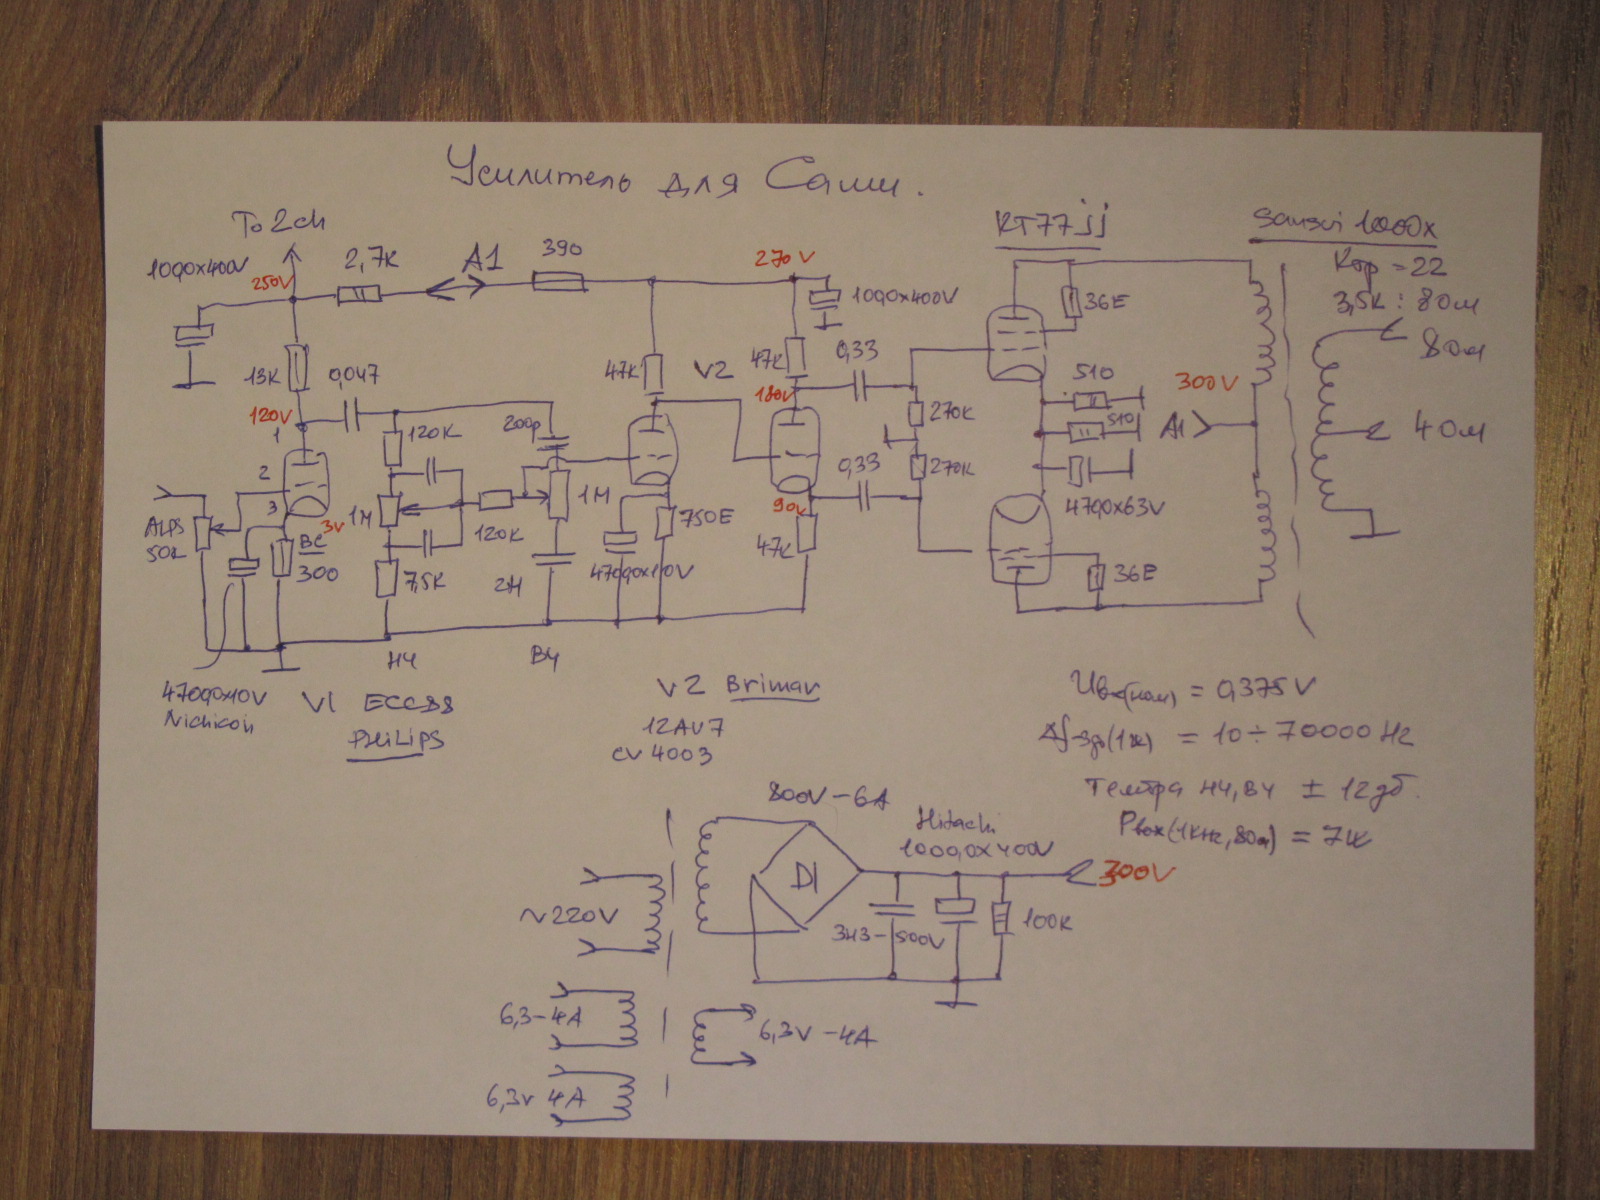 Усилитель для Саши.
To 2ch
1000x400V
250V
2,7K
A1
390
270V
1000x400V
KT77jj
Sansui 1000x
Ктр = 22
3,5K : 8Ом
8Ом
4Ом
36E
13K
0,047
120V
1
2
3
3V
ALPS
50K
BC
300
120K
1M
7,5K
120K
200p
1M
2H
47K
V2
47K
180V
0,33
750E
90V
47K
0,33
270K
270K
510
510
300V
A1
4700x63V
36E
НЧ
ВЧ
Nichicon
V1 ECC88
PHILIPS
V2 Brimar
12AU7
CV4003
Uвх(ном) = 0,375V
= 10÷70000Hz
Тембра НЧ, ВЧ ± 12дб.
Pвых(1KHz, 8Ом) =
800V-6A
Hitachi
1000,0x400V
D1
300V
~220V
3H3-500V
100K
6,3-4A
6,3V-4A
6,3V 4A